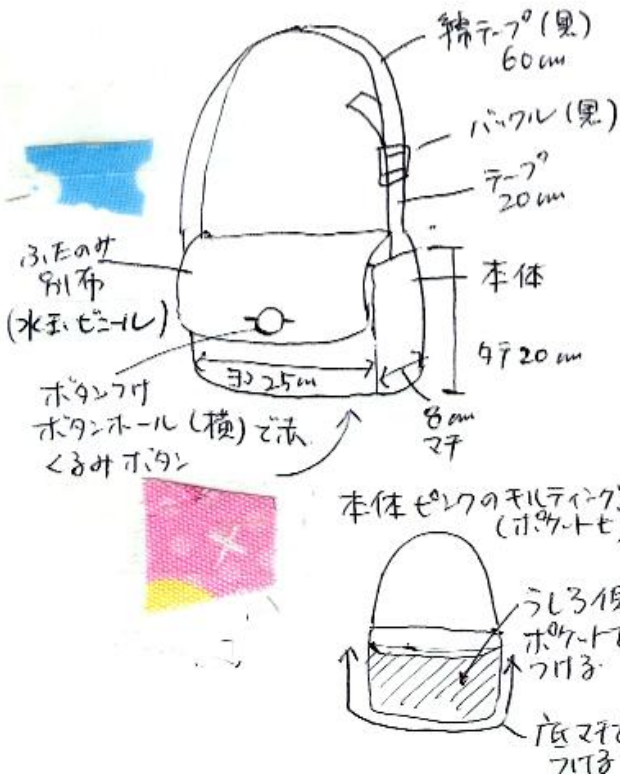 綿テープ(黒)
60cm
バックル(黒)
テープ
20cm
ふたのみ
別布
(水玉ビニール)
本体
タテ20cm
ヨコ25cm
8cm
マチ
ボタンつけ
ボタンホール(横)で
くるみボタン
本体ピンクのキルティング
(ポケットも
うしろ側
ポケット
つける
底マチ
つける